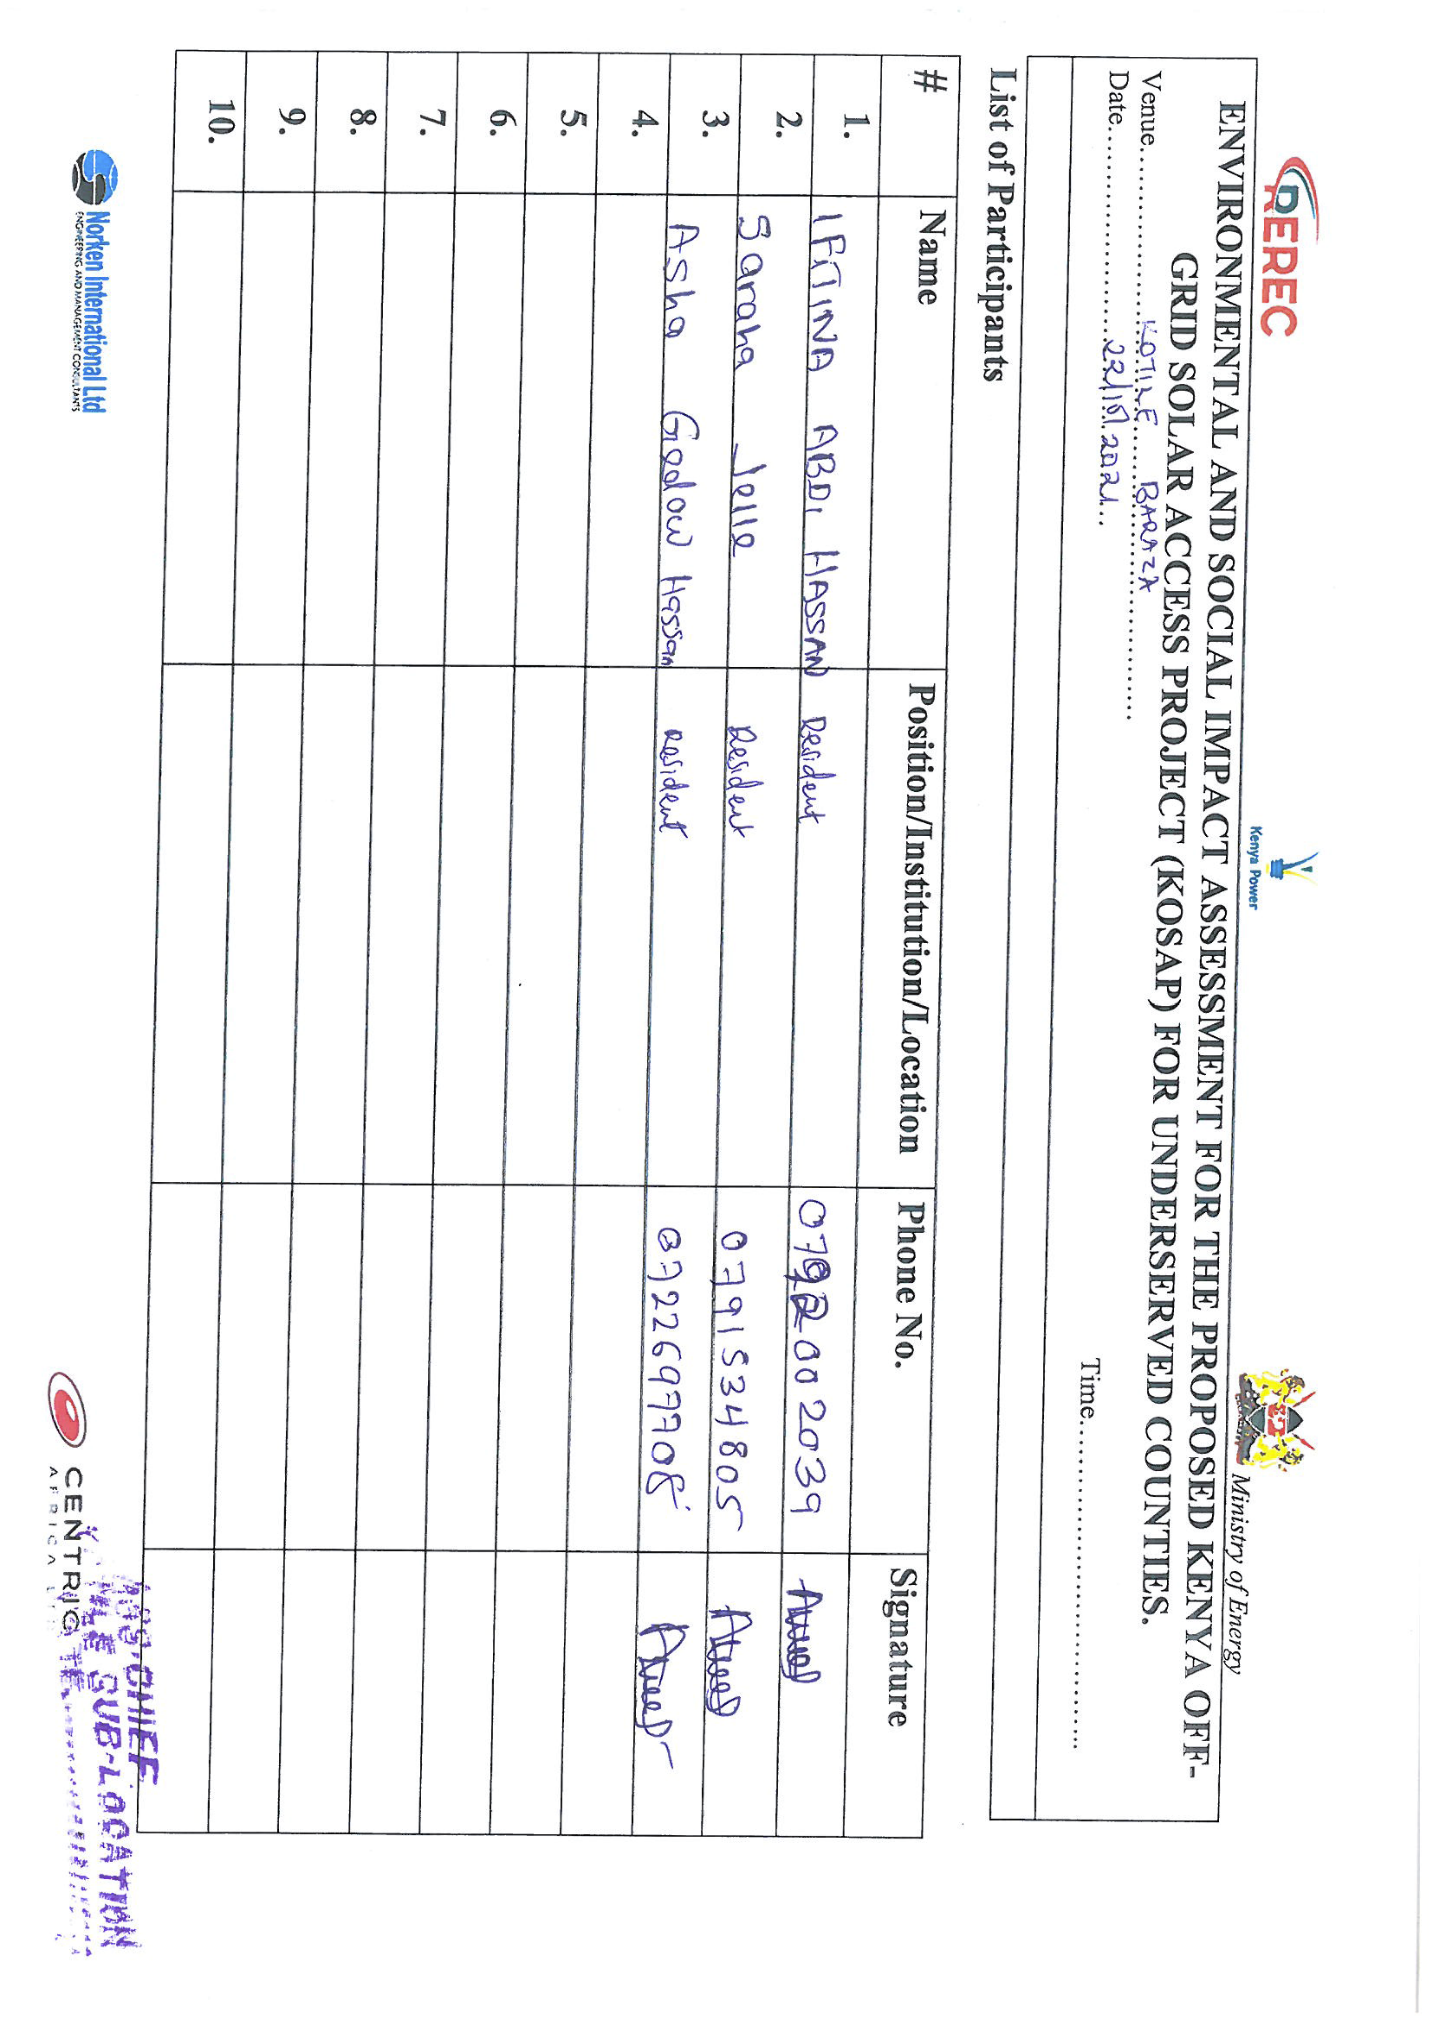 REREC
Kenya Power
Ministry of Energy
ENVIRONMENTAL AND SOCIAL IMPACT ASSESSMENT FOR THE PROPOSED KENYA OFF-
GRID SOLAR ACCESS PROJECT (KOSAP) FOR UNDERSERVED COUNTIES.
Venue....................KOTILE BARAZA....................
Date....................22/10/2021... Time....................
List of Participants
# Name Position/Institution/Location Phone No. Signature
1. IFTINA ABDI HASSAN Resident 0792002039
2. Saraha Jelle Resident 0791534805
3. Asha Gedow Hassan Resident 0722697708
4.
5.
6.
7.
8.
9.
10.
Norken International Ltd
ENGINEERING AND MANAGEMENT CONSULTANTS
CENTRIC
AFRICA
CHIEF
SUB-LOCATION